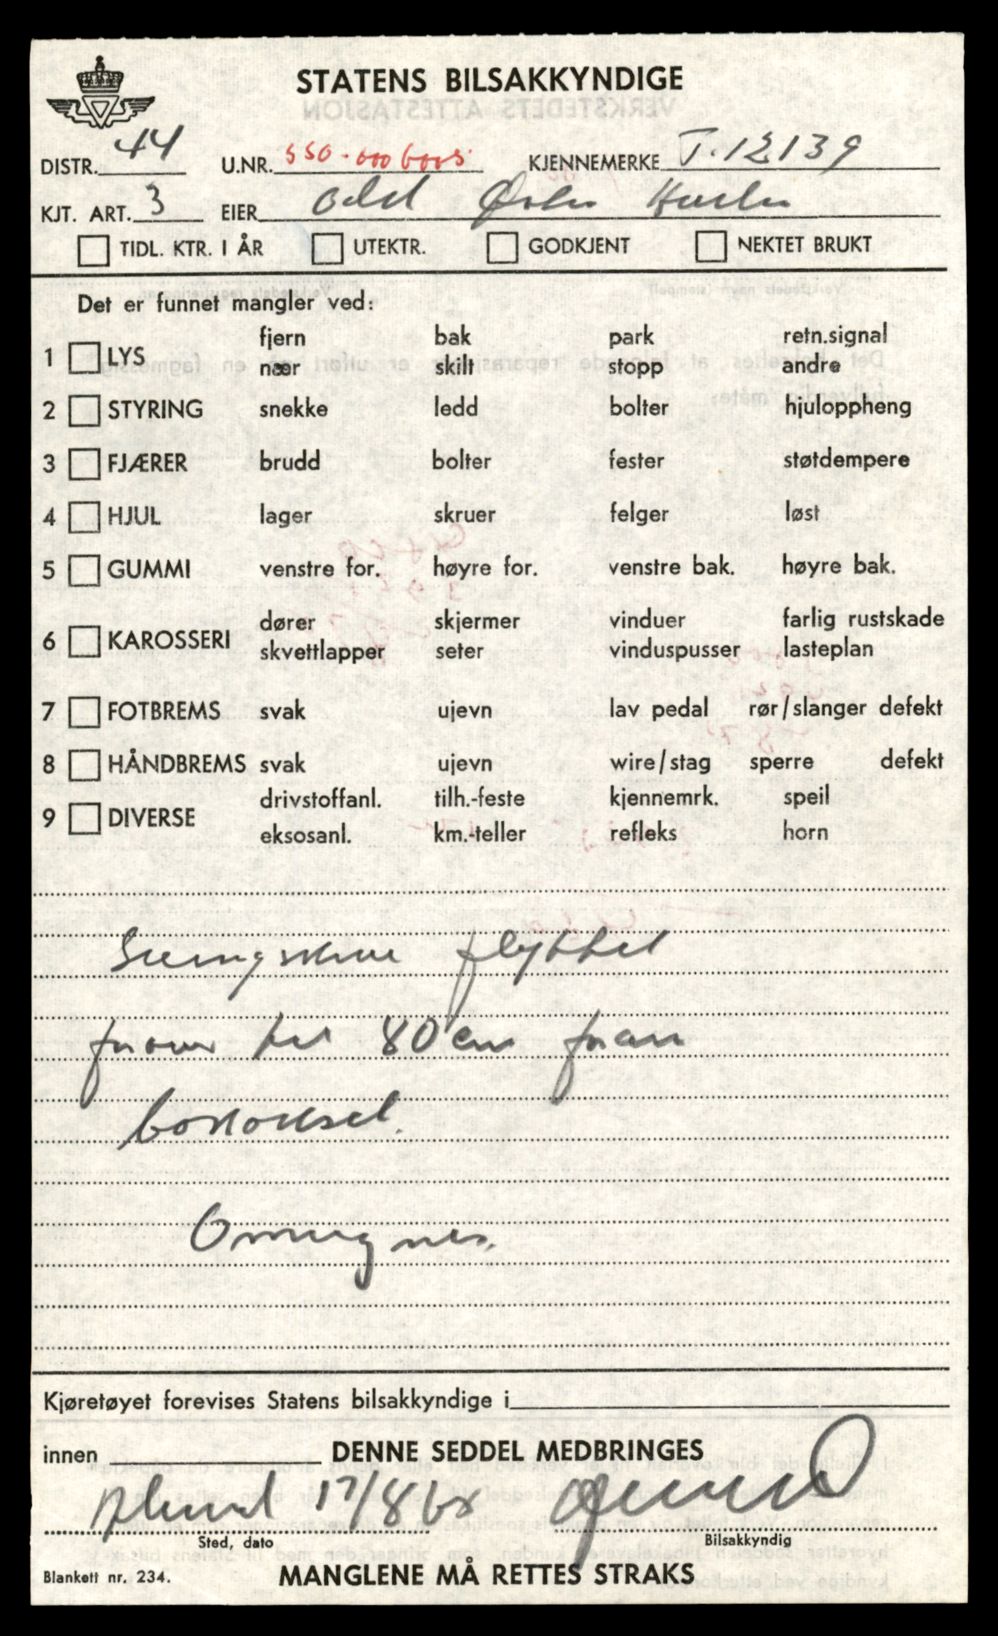 STATENS BILSAKKYNDIGE
DISTR. 44 U.NR. 550-0006005 KJENNEMERKE T-12139
KJT. ART. 3 EIER Odd
TIDL. KTR. I ÅR UTEKTR. GODKJENT NEKTET BRUKT
Det er funnet mangler ved:
1 LYS fjern bak park retn.signal
nær skilt stopp andre
2 STYRING snekke ledd bolter hjuloppheng
3 FJÆRER brudd bolter fester støtdempere
4 HJUL lager skruer felger løst
5 GUMMI venstre for. høyre for. venstre bak. høyre bak.
6 KAROSSERI dører skjermer vinduer farlig rustskade
skvettlapper seter vinduspusser lasteplan
7 FOTBREMS svak ujevn lav pedal rør/slanger defekt
8 HÅNDBREMS svak ujevn wire/stag sperre defekt
9 DIVERSE drivstoffanl. tilh.-feste kjennemrk. speil
eksosanl. km.-teller refleks horn
Svingskive flyttet
frover til 80 cm foran
bakaksel.
Omregnes.
Kjøretøyet forevises Statens bilsakkyndige i
innen DENNE SEDDEL MEDBRINGES
Ålesund 17/8 68
Sted, dato Bilsakkyndig
Blankett nr. 234. MANGLENE MÅ RETTES STRAKS